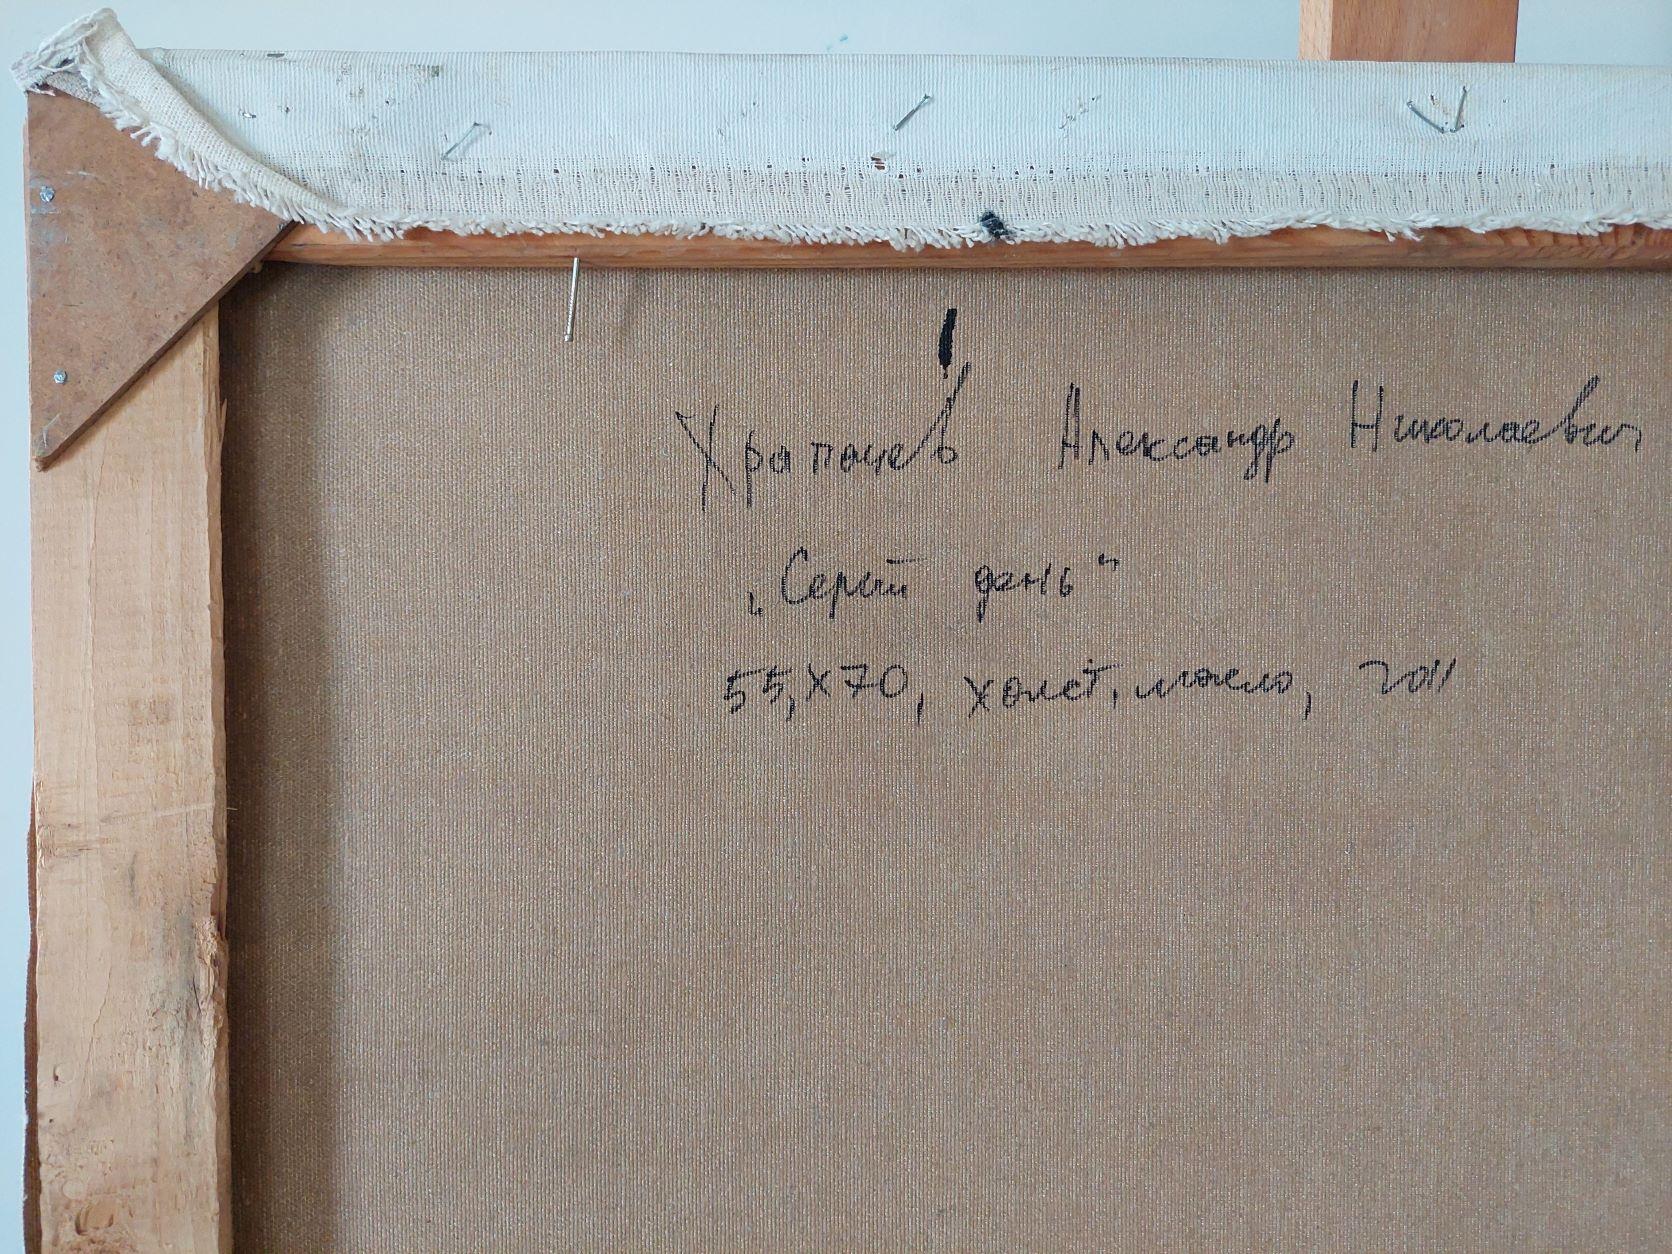 Храпачев Александр Николаевич
„Серый день“
55,х70, холст, масло, 2011